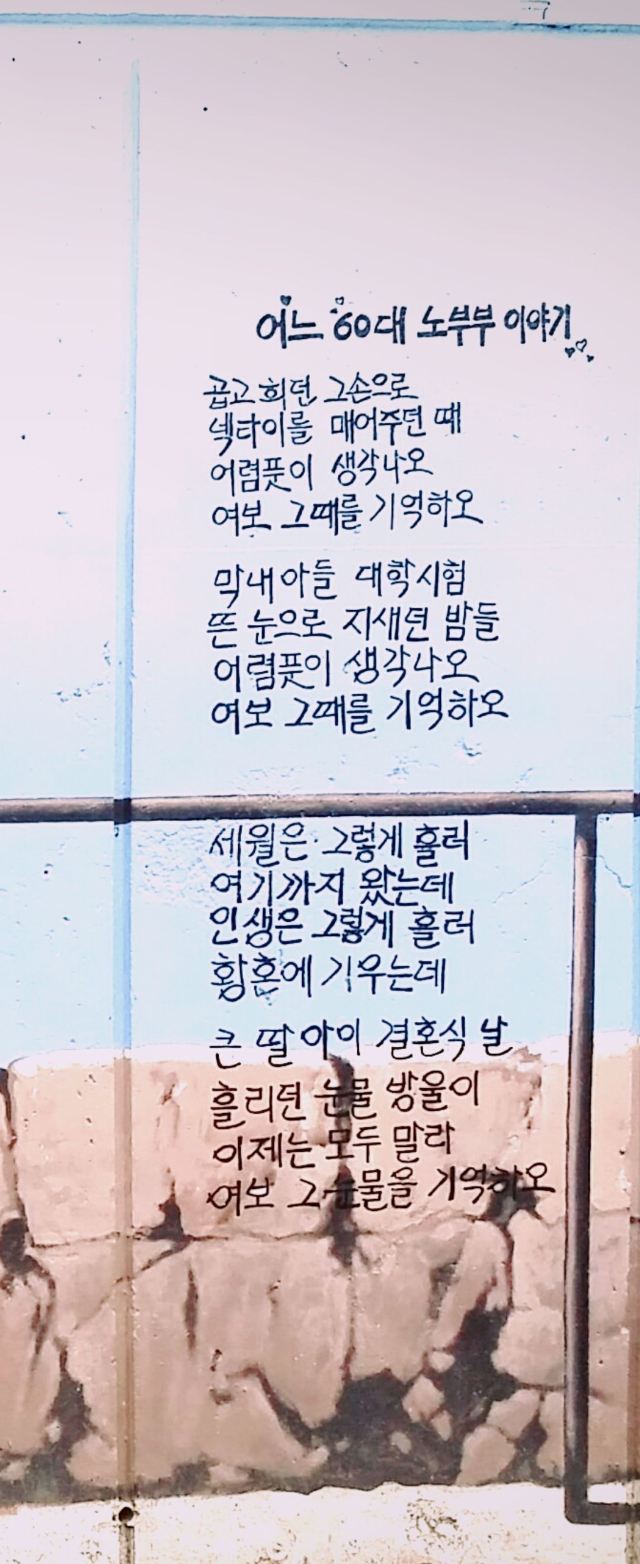 어느 60대 노부부 이야기
곱고 희던 그손으로
넥타이를 매어주던 때
어렴풋이 생각나오
여보 그때를 기억하오
막내아들 대학시험
뜬 눈으로 지새던 밤들
어렴풋이 생각나오
여보 그때를 기억하오
세월은 그렇게 흘러
여기까지 왔는데
인생은 그렇게 흘러
황혼에 기우는데
큰 딸 아이 결혼식 날
흘리던 눈물 방울이
이제는 모두 말라
여보 그 눈물을 기억하오